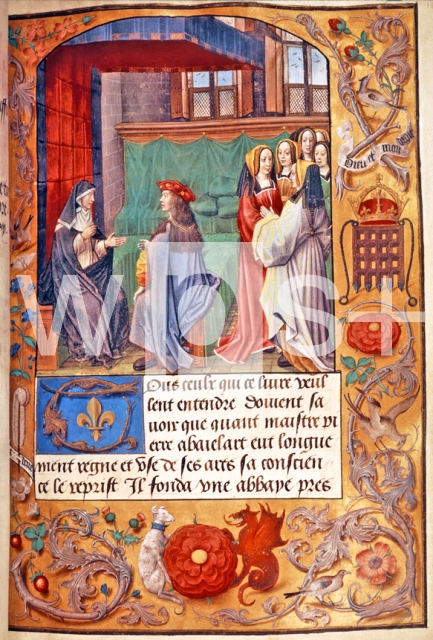 Dieu et mon
Ous ceulx qui ce liure veul
lent entendre doiuent sa
uoir que quant maistre pi
erre abaielart eut longue
ment regne et vse de ses ars sa conscien
ce le reprist Il fonda vne abbaye pres
wps+